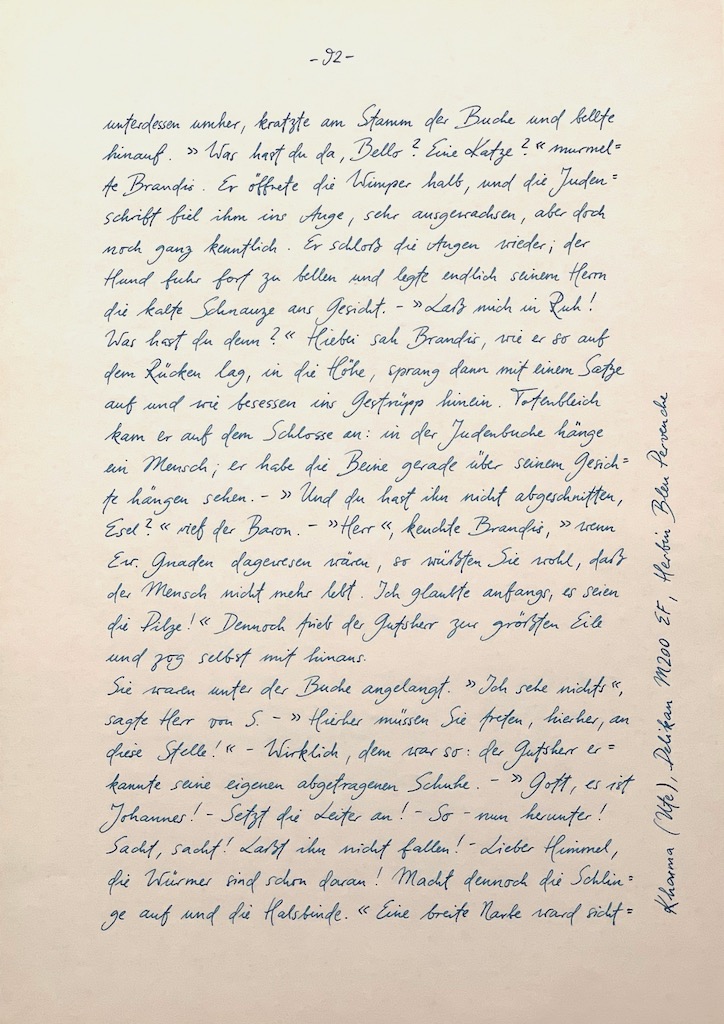 -92-
unterdessen umher, kratzte am Stamm der Buche und bellte
hinauf. »Was hast du da, Bello? Eine Katze?« murmel=
te Brandis. Er öffnete die Wimper halb, und die Juden=
schrift fiel ihm ins Auge, sehr ausgewachsen, aber doch
noch ganz kenntlich. Er schloß die Augen wieder; der
Hund fuhr fort zu bellen und legte endlich seinem Herrn
die kalte Schnauze ans Gesicht. - »Laß mich in Ruh!
Was hast du denn?« Hiebei sah Brandis, wie er so auf
dem Rücken lag, in die Höhe, sprang dann mit einem Satze
auf und wie besessen ins Gestrüpp hinein. Totenbleich
kam er auf dem Schlosse an: in der Judenbuche hänge
ein Mensch; er habe die Beine gerade über seinem Gesich=
te hängen sehen. - »Und du hast ihn nicht abgeschnitten,
Esel?« rief der Baron. - »Herr«, keuchte Brandis, »wenn
Ew. Gnaden dagewesen wären, so wüßten Sie wohl, daß
der Mensch nicht mehr lebt. Ich glaubte anfangs, es seien
die Pilze!« Dennoch trieb der Gutsherr zur größten Eile
und zog selbst mit hinaus.
Sie waren unter der Buche angelangt. »Ich sehe nichts«,
sagte Herr von S. - »Hierher müssen Sie treten, hierher, an
diese Stelle!« - Wirklich, dem war so: der Gutsherr er=
kannte seine eigenen abgetragenen Schuhe. - »Gott, es ist
Johannes! - Setzt die Leiter an! - So - nun herunter!
Sacht, sacht! Laßt ihn nicht fallen! - Lieber Himmel,
die Würmer sind schon daran! Macht dennoch die Schlin=
ge auf und die Halsbinde.« Eine breite Narbe ward sicht=
Kharma (Ute), Pelikan M200 EF, Herbin Bleu Pervenche